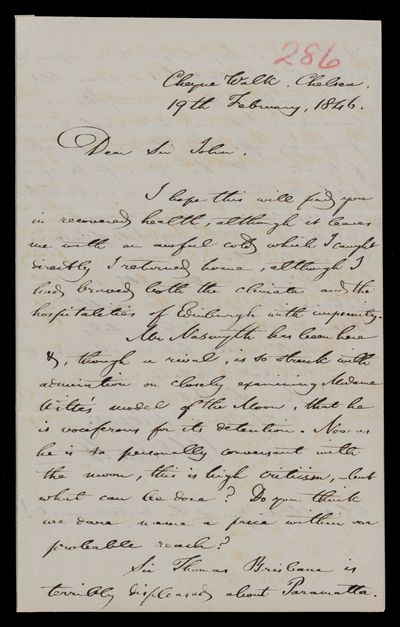 286
Cheyne Walk. Chelsea,
19th February, 1846.
Dear Sir John,
I hope this will find you
in recovered health, although it leaves
me with an awful cold which I caught
directly I returned home, although I
had braved both the climate and the
hospitalities of Edinburgh with impunity.
Mr Nasmyth has been here
&, though a rival, is so struck with
admiration on closely examining Madame
Witte's model of the Moon, that he
is vociferous for its detention. Now as
he is so personally conversant with
the moon, this is high criticism, but
what can be done? Do you think
we dare name a price within our
probable reach?
Sir Thomas Brisbane is
terribly displeased about Paramatta.